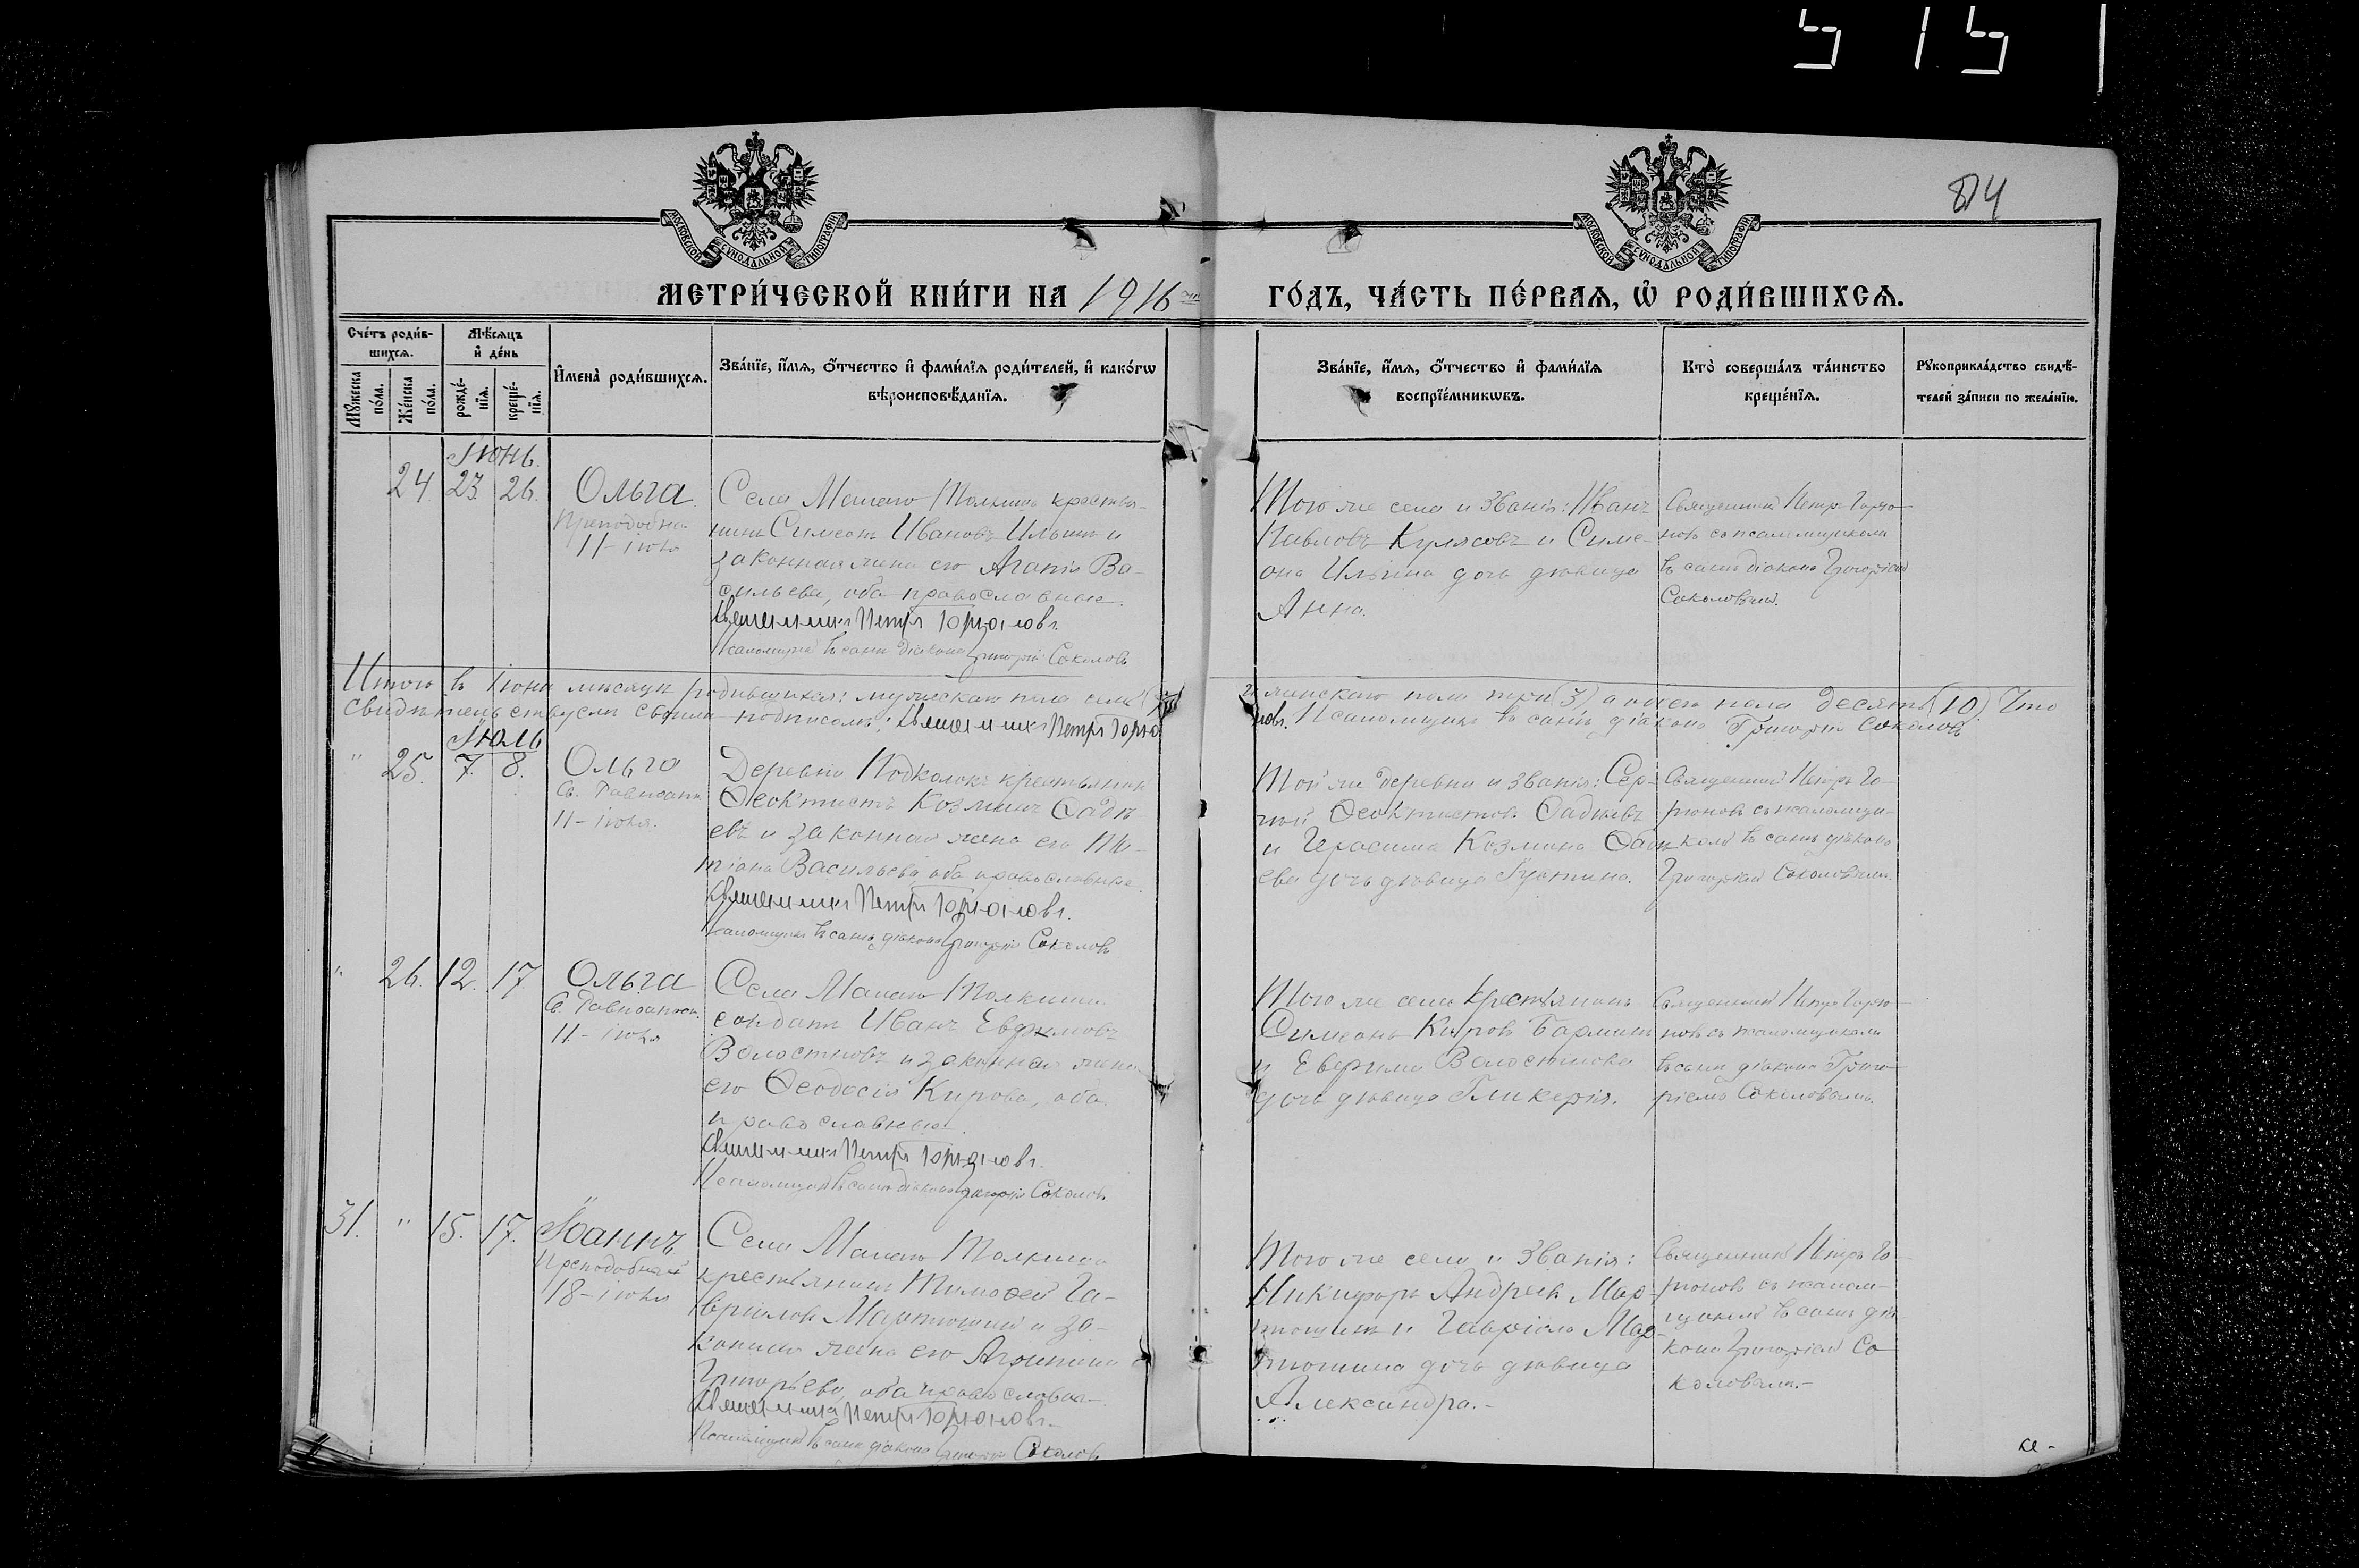 515
814
МОСКОВСКОЙ СѴНОДАЛЬНОЙ ТИПОГРАФІИ
МОСКОВСКОЙ СѴНОДАЛЬНОЙ ТИПОГРАФІИ
МЕТРИ́ЧЕСКОЙ КНИ́ГИ НА 1916 ГО́ДЪ, ЧА́СТЬ ПЕ́РВАЯ, Ѡ РОДИ́ВШИХСЯ.
Сче́тъ роди́в-
шихся.
Мѣ́сяцъ
и де́нь
Мꙋ́жеска по́ла.
Же́нска по́ла.
рожде́-нїя.
креще́-нїя.
Имена̀ роди́вшихся.
Зва́нїе, и́мя, ѻ́тчество и фами́лїя роди́телей, и како́гѡ
вѣроисповѣ́данїя.
Зва́нїе, и́мя, ѻ́тчество и фами́лїя
воспрїе́мникѡвъ.
Кто̀ соверша́лъ та́инство
креще́нїя.
Рꙋкоприкла́дство свидѣ́-
телей за́писи по жела́нїю.
Іюнь.
24. 23. 26. Ольга
Преподобна
11 - іюля
Села Малаго Толкиша крестья-
нинъ Симеонъ Ивановъ Ильинъ и
законная жена его Агапія Ва-
сильева, оба православные.
Священникъ Петръ Горюновъ.
Псаломщикъ въ санѣ діакона Григорій Соколовъ
Того же села и званія: Иванъ
Павловъ Кулясовъ и Симе-
она Ильина дочь дѣвица
Анна.
Священникъ Петръ Горю-
новъ съ псаломщикомъ
въ санѣ діакона Григоріемъ
Соколовымъ.
Итого въ Іюнѣ мѣсяцѣ родившихся: мужескаго пола семь (7) женскаго пола три (3), а обоего пола десять (10). Что
свидѣтельствуемъ своимъ подписомъ: Священникъ Петръ Горюновъ. Псаломщикъ въ санѣ діакона Григорій Соколовъ
Іюль
" 25. 7. 8. Ольга
Св. Равноапн.
11 - іюля.
Деревни Подколокъ крестьянинъ
Ѳеоктистъ Козминъ Ѳадѣ-
евъ и законная жена его Та-
тіана Васильева, оба православные.
Священникъ Петръ Горюновъ.
Псаломщикъ въ санѣ діакона Григорій Соколовъ
Той же деревни и званія: Сер-
гѣй Ѳеоктистовъ Ѳадѣевъ
и Герасима Козмина Ѳадѣ-
ева дочь дѣвица
Священникъ Петръ Го-
рюновъ съ псаломщи-
комъ въ санѣ діакона
Григоріемъ Соколовымъ.
" 26. 12. 17 Ольга
Св. Равноапост.
11 - іюля
Села Малаго Толкиша
солдатъ Иванъ Евфимовъ
Волостновъ и законная жена
его Ѳеодосія Кирова, оба
православные.
Священникъ Петръ Горюновъ.
Псаломщикъ въ санѣ діакона Григорій Соколовъ.
Того же села крестьянинъ
Симеонъ Кировъ Барминъ
и Евфима Волостнова
дочь дѣвица Гликерія.
Священникъ Петръ Горю-
новъ съ псаломщикомъ
въ санѣ діакона Григо-
ріемъ Соколовымъ.
31. " 15. 17. Іоаннъ
Преподобный
18 - іюля
Села Малаго Толкиша
крестьянинъ Тимоѳей Га-
вріиловъ Мартюшинъ и за-
конная жена его Агрипина
Григорьева, оба православн-
Священникъ Петръ Горюновъ.-
Псаломщикъ въ санѣ діакона Григорій Соколовъ
Того же села и званія:
Никифоръ Андреевъ Мар-
тюшинъ и Гавріила Мар-
тюшина дочь дѣвица
Александра.-
Священникъ Петръ Го-
рюновъ съ псалом-
щикомъ въ санѣ діа-
кона Григоріемъ Со-
коловымъ.-